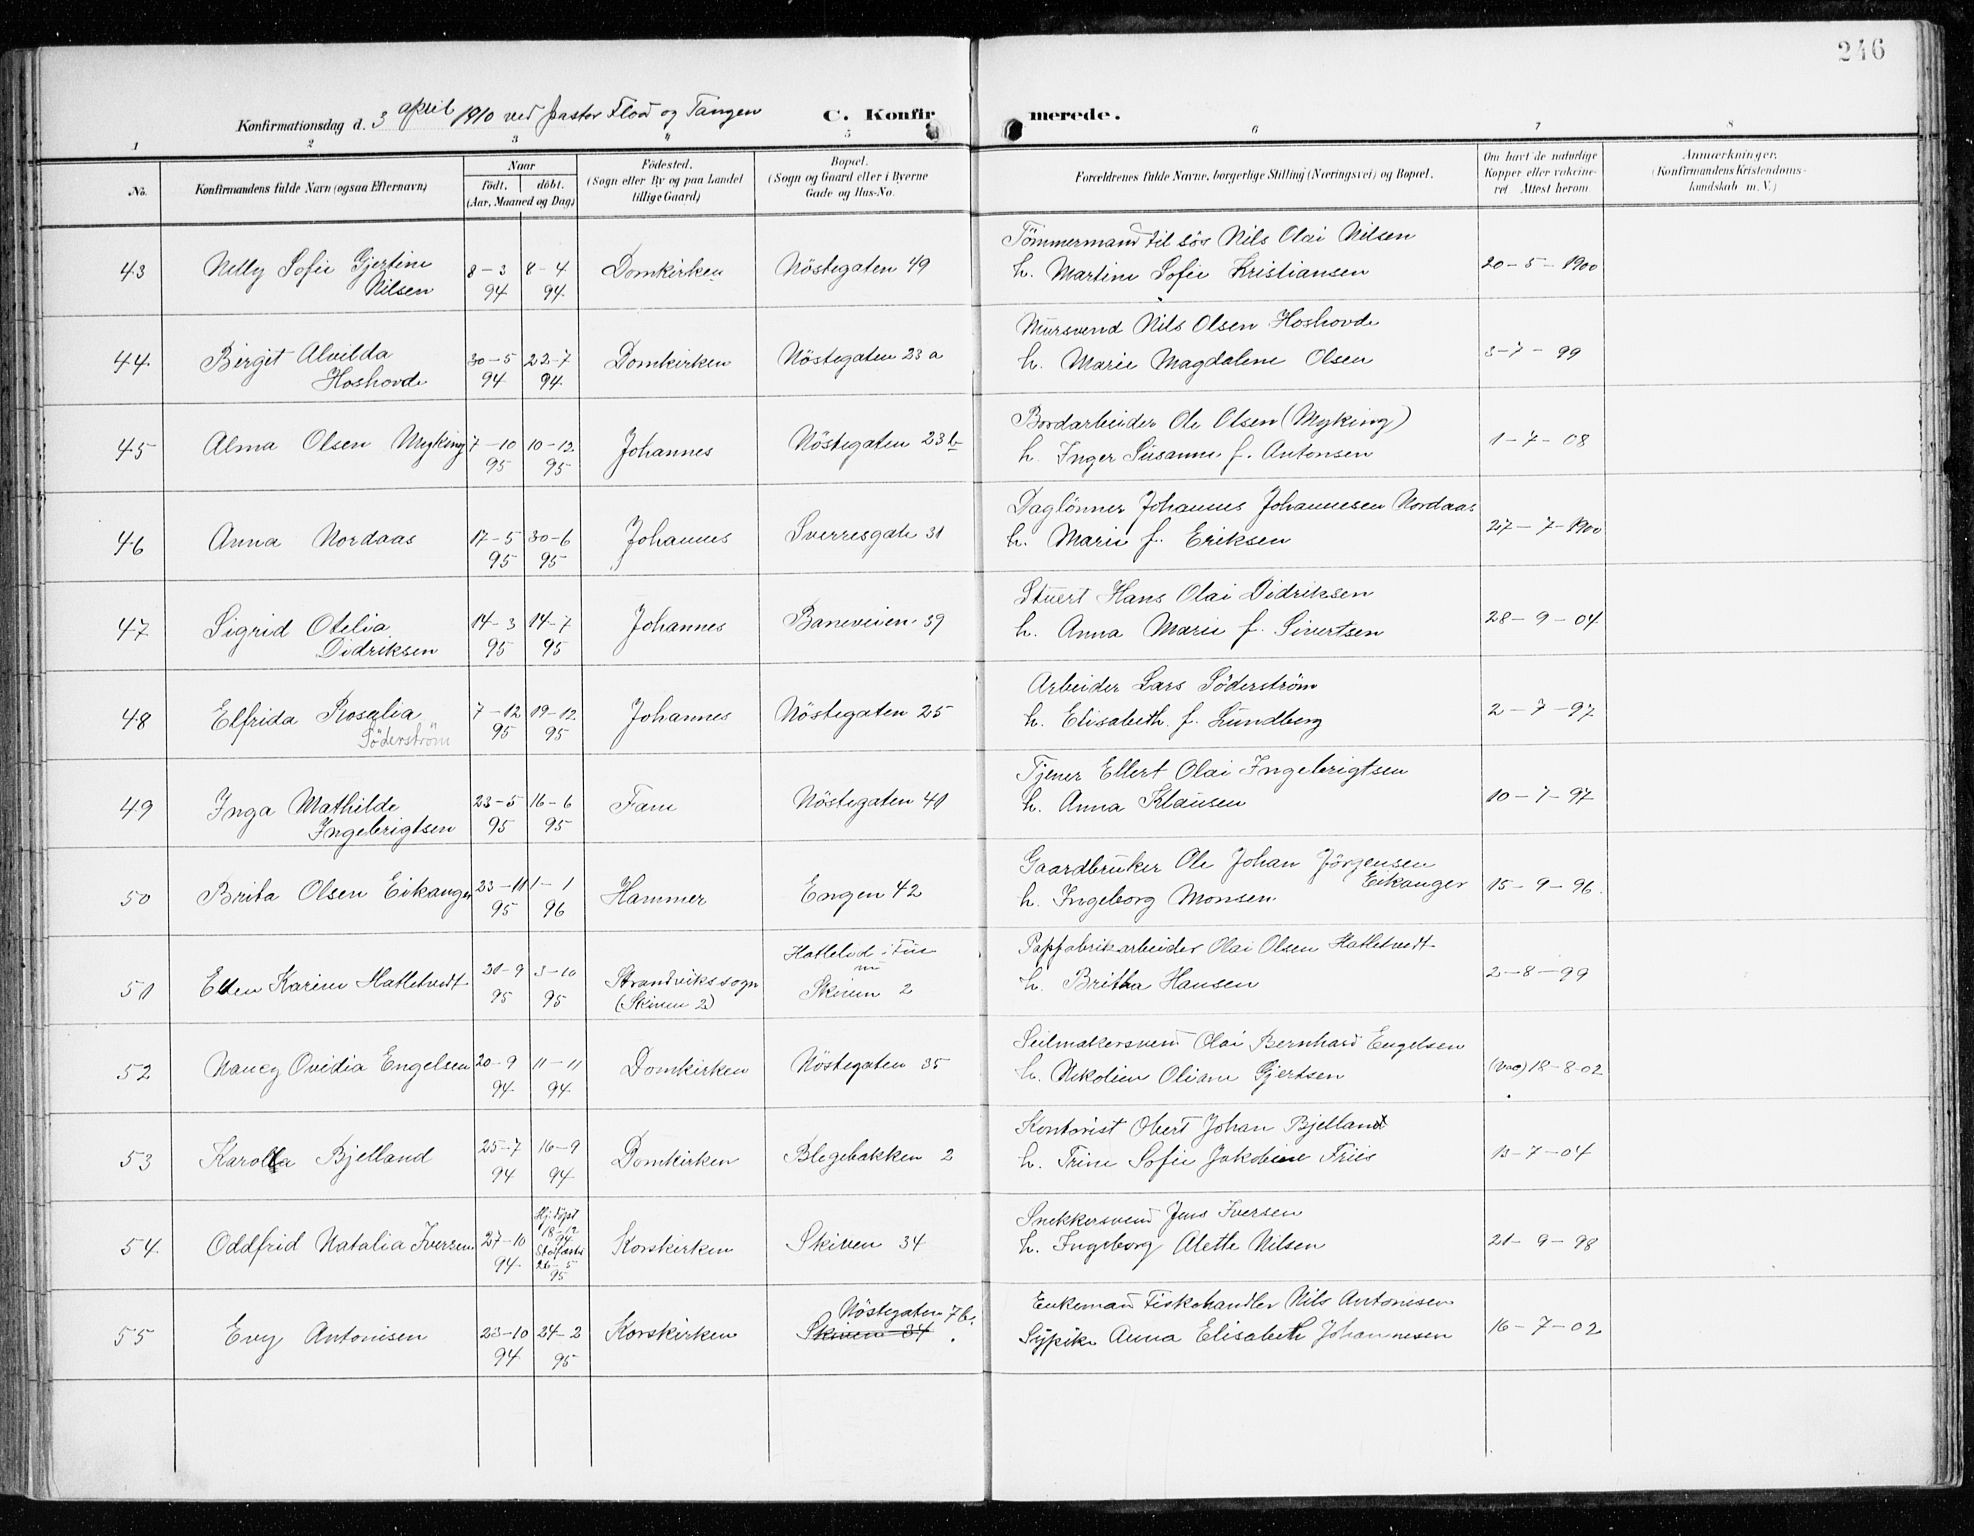 246
Konfirmationsdag d. 3 april 1910 ved pastor Flod og Tangen C. Konfirmerede.
1 2 3 4 5 6 7 8
No. Konfirmandens fulde Navn (ogsaa Efternavn) Naar født, døbt. (Aar, Maaned og Dag) Födested, (Sogn eller By og paa Landet tillige Gaard) Bopæl. (Sogn og Gaard eller i Byerne Gade og Hus-No. Forældrenes fulde Navne, borgerlige Stilling (Næringsvei) og Bopæl. Om havt de naturlige Kopper eller vakcineret Attest herom Anmærkninger, (Konfirmandens Kristendomskundskab m. V.)
43 Nelly Sofie Gjertine Nilsen 8-3 94 8-4 94 Domkirken Nöstegaten 49 Tömmermand til sös Nils Olai Nilsen
h. Martine Sofie Kristiansen 20-5-1900
44. Birgit Alvilda Hoshovde 30-5 94 22-7 94 Domkirken Nöstegaten 23 a Mursvend Nils Olsen Hoshovde
h. Marie Magdalene Olsen 3-7-99
45 Alma Olsen Myking 7-10 95 10-12 95 Johannes Nöstegaten 23 b Bordarbeider Ole Olsen (Myking)
h. Inger Susanne f. Antonsen 1-7-08
46 Anna Nordaas 17-5 95 30-6 95 Johannes Sverresgate 31 Daglönner Johannes Johannesen Nordaas
h. Marie f. Eriksen 27-7-1900
47 Sigrid Otelia Didriksen 14-3 95 14-7 95 Johannes Baneveien 59 Stuert Hans Olai Didriksen
h. Anna Marie f. Sivertsen 28-9-04
48 Elfrida Rosalia Söderström 7-12 95 19-12 95 Johannes Nöstegaten 25 Arbeider Lars Söderström
h. Elisabeth f. Lundberg 2-7-97
49 Inga Mathilde Ingebrigtsen 23-5 95 16-6 95 Fane Nöstegaten 41 Tjener Ellert Olai Ingebrigtsen
h. Anna Klausen 10-7-97
50 Brita Olsen Eikanger 23-11 95 1-1 96 Hammer Engen 42 Gaardbruker Ole Johan Jörgensen Eikanger
h. Ingeborg Monsen 15-9-96.
51 Ellen Karine Hatletvedt 21-9 95 3-10 95 Strandviks sogn (Skiven 2) Skiven 2 Papfabrikarbeider Olai Olsen Hatletvedt
h. Britha Hansen 2-8-99
52 Nancy Ovidia Engelsen 20-9 94 11-11 94 Domkirken Nöstegaten 35 Seilmakersvend Olai Bernhard Engelsen
h. Nikoline Oliane Gjertsen (vac) 18-8-02
53 Karolla Bjelland 25-7 94 16-9 94 Domkirken Blegebakken 2 Kontorist Obert Johan Bjelland
h. Trine Sofie Jakobine Friis 13-7-04
54. Oddfrid Natalia Iversen 27-10 94. Hj.döpt 18-12 94 26-5 95 Korskirken Skiven 34 Snekkersvend Jens Iversen
h. Ingeborg Alette Nilsen 21-9-98
55 Evy Antonisen 23-10 94 24-2 95 Korskirken Nöstegaten 7 b. Skiven 34 Enkemand Fiskehandler Nils Antonisen
Sypike Anna Elisabeth Johannesen 16-7-02